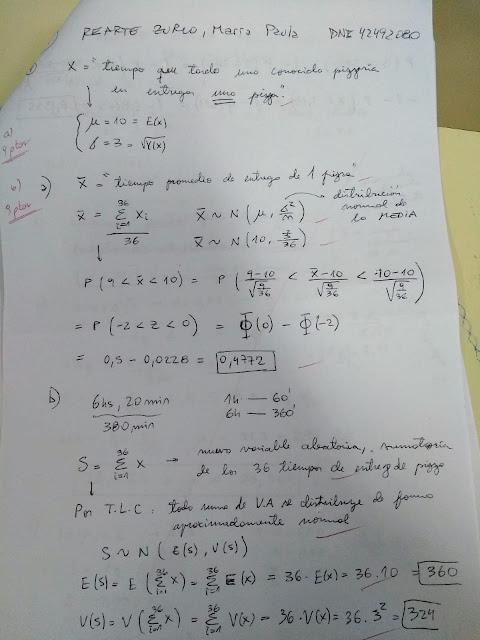 REARTE ZURLO, María Paula DNI 42492680
X = "tiempo que tarda una conocida pizzería
en entregar una pizza".
{ μ = 10 = E(x)
σ = 3 = √V(x)
a)
9 ptos
b)
9 ptos
a) X̄ = "tiempo promedio de entrega de 1 pizza"
X̄ = Σ_{i=1}^{36} Xi / 36 X̄ ~ N(μ, σ²/n) → distribución normal de la MEDIA
X̄ ~ N(10, 3/36)
P(9 < X̄ < 10) = P( (9-10)/√(9/36) < (X̄-10)/√(9/36) < (10-10)/√(9/36) )
= P(-2 < Z < 0) = Φ(0) - Φ(-2)
= 0,5 - 0,0228 = 0,4772
b) 6hs, 20 min 1h — 60'
380 min 6h — 360'
S = Σ_{i=1}^{36} X → nueva variable aleatoria, sumatoria
de los 36 tiempos de entrega de pizza
Por T.L.C: toda suma de V.A se distribuye de forma
aproximadamente normal
S ~ N (E(s), V(s))
E(s) = E(Σ_{i=1}^{36} X) = Σ_{i=1}^{36} E(x) = 36 · E(x) = 36 . 10 = 360
V(s) = V(Σ_{i=1}^{36} X) = Σ_{i=1}^{36} V(x) = 36 · V(x) = 36 . 3² = 324